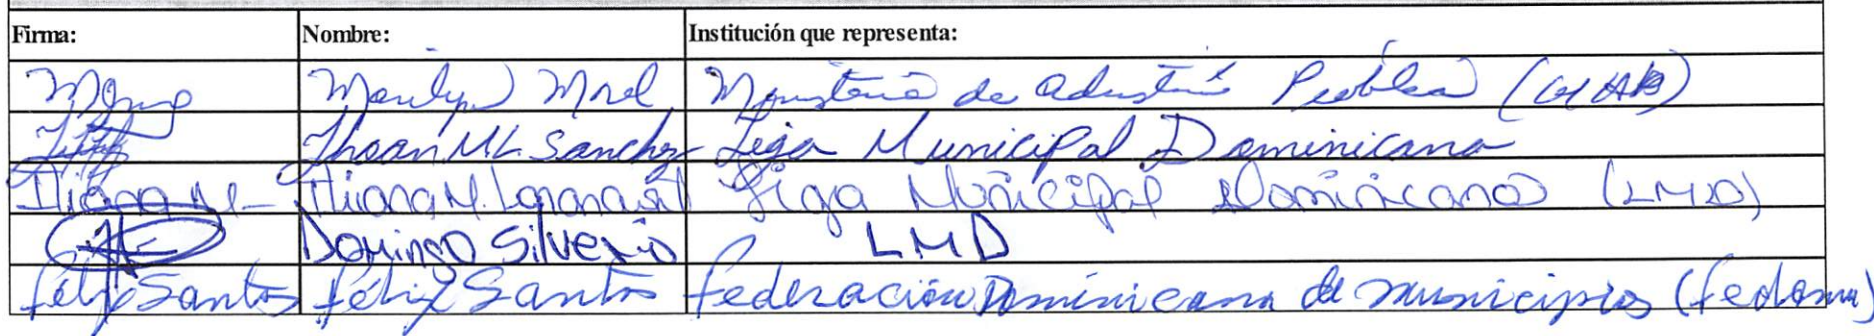 Firma: Nombre: Institución que representa:
Marilyn Morel Ministerio de Pública
Jhoan ML. Sanchez Liga Municipal Dominicana
Iliana M. Iliana M. Liga Municipal Dominicana (LMD)
Domingo Silverio LMD
Félix Santos Félix Santos Federación Dominicana de municipios (fedomu)